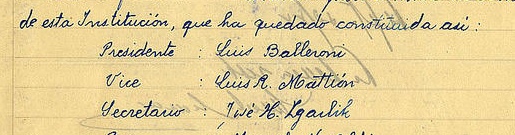 de esta Institución, que ha quedado constituida así:
Presidente : Luis Balleroni
Vice : Luis R. Mattión
Secretario : José H. Zgarlik